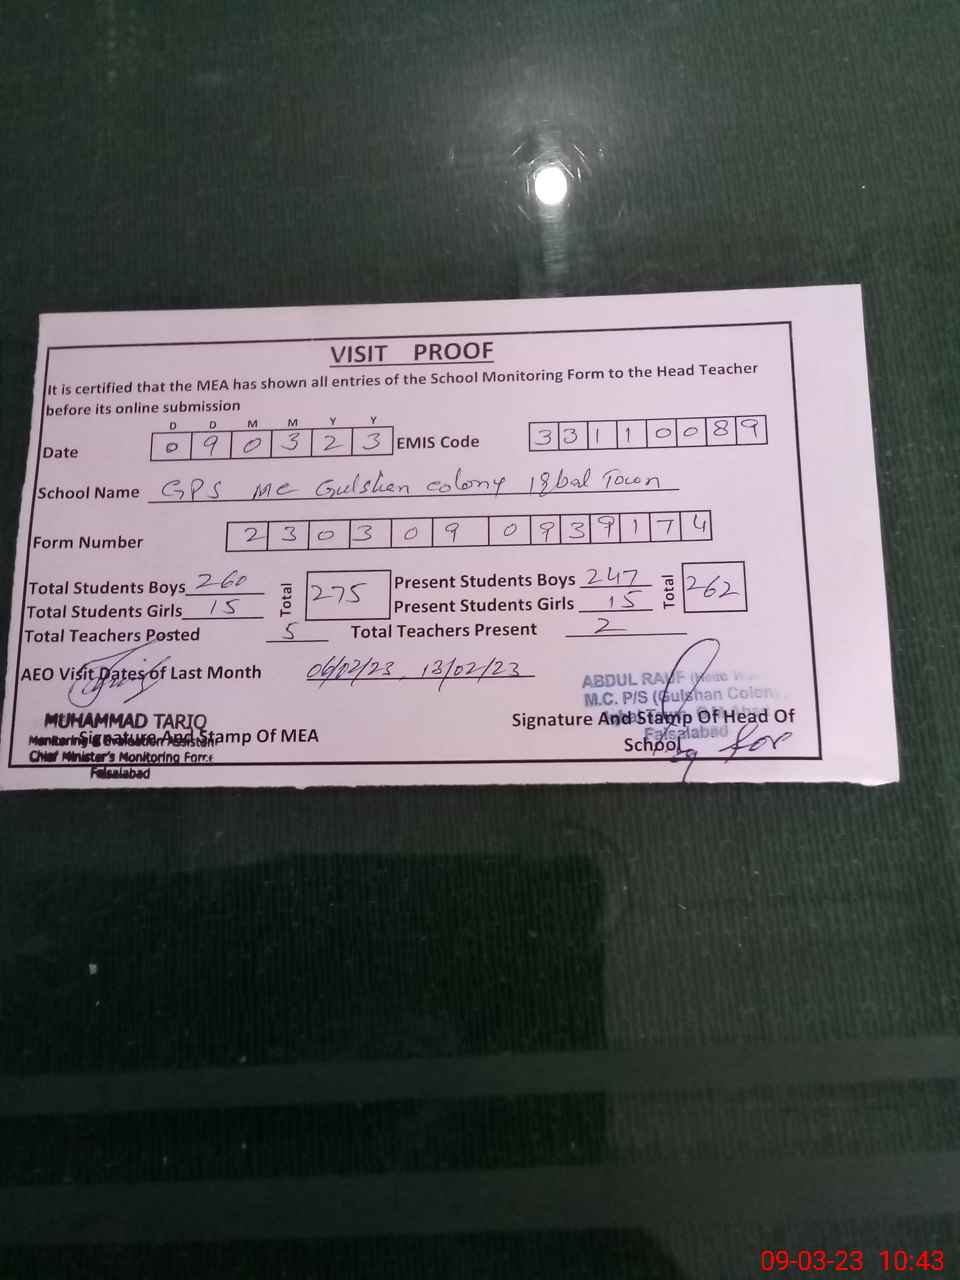 VISIT PROOF
It is certified that the MEA has shown all entries of the School Monitoring Form to the Head Teacher
before its online submission
D D M M Y Y
Date 0 9 0 3 2 3 EMIS Code 3 3 1 1 0 0 8 9
School Name GPS MC Gulshan colony Iqbal Town
Form Number 2 3 0 3 0 9 0 9 3 9 1 7 4
Total Students Boys 260 Total 275 Present Students Boys 247 Total 262
Total Students Girls 15 Present Students Girls 15
Total Teachers Posted 5 Total Teachers Present 2
AEO Visit Dates of Last Month 06/02/23, 13/02/23
ABDUL RAUF (Head
M.C. P/S (Gulshan Colony
Iqbal Town
Faisalabad
Signature And Stamp Of Head Of
School
for
MUHAMMAD TARIQ
Monitoring & Evaluation Assistant
Chief Minister's Monitoring Force
Faisalabad
Signature And Stamp Of MEA
09-03-23 10:43